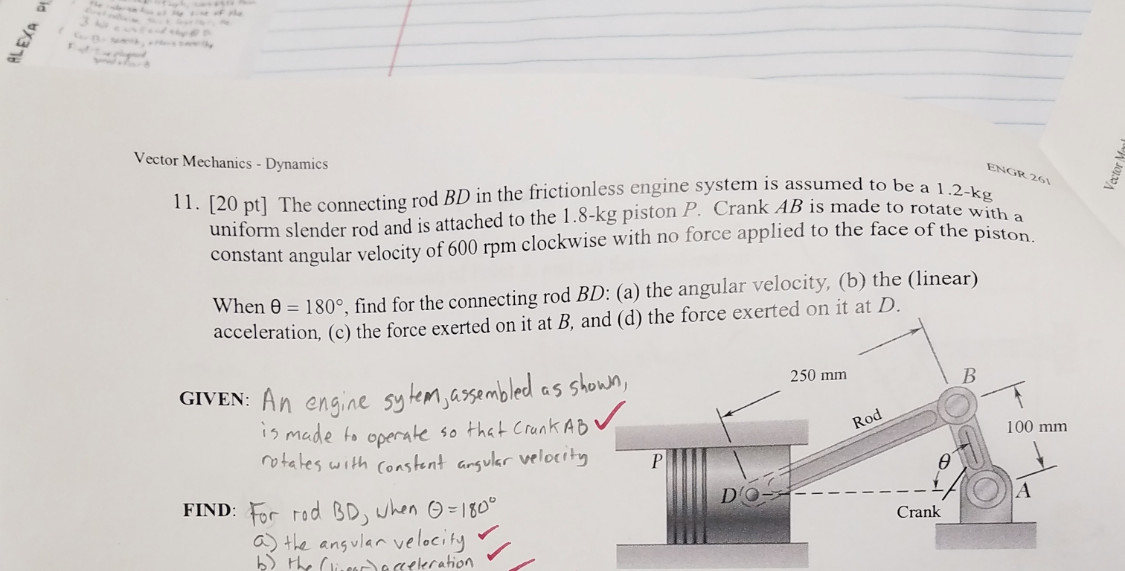 ALEXA
Vector Mechanics - Dynamics
ENGR 261
11. [20 pt] The connecting rod BD in the frictionless engine system is assumed to be a 1.2-kg
uniform slender rod and is attached to the 1.8-kg piston P. Crank AB is made to rotate with a
constant angular velocity of 600 rpm clockwise with no force applied to the face of the piston.
When θ = 180°, find for the connecting rod BD: (a) the angular velocity, (b) the (linear)
acceleration, (c) the force exerted on it at B, and (d) the force exerted on it at D.
GIVEN: An engine sytem, assembled as shown,
is made to operate so that Crank AB
rotates with constant angular velocity
FIND: For rod BD, when θ = 180°
a) the angular velocity
b) the (linear) acceleration
250 mm
B
Rod
100 mm
P
θ
D
A
Crank
Vector